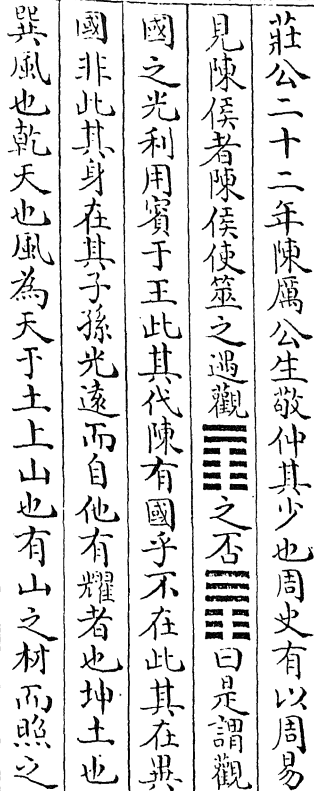 莊公二十二年陳厲公生敬仲其少也周史有以周易
見陳侯者陳侯使筮之遇觀䷓之否䷋曰是謂觀
國之光利用賓于王此其代陳有國乎不在此其在異
國非此其身在其子孫光遠而自他有耀者也坤土也
巽風也乾天也風為天于土上山也有山之材而照之